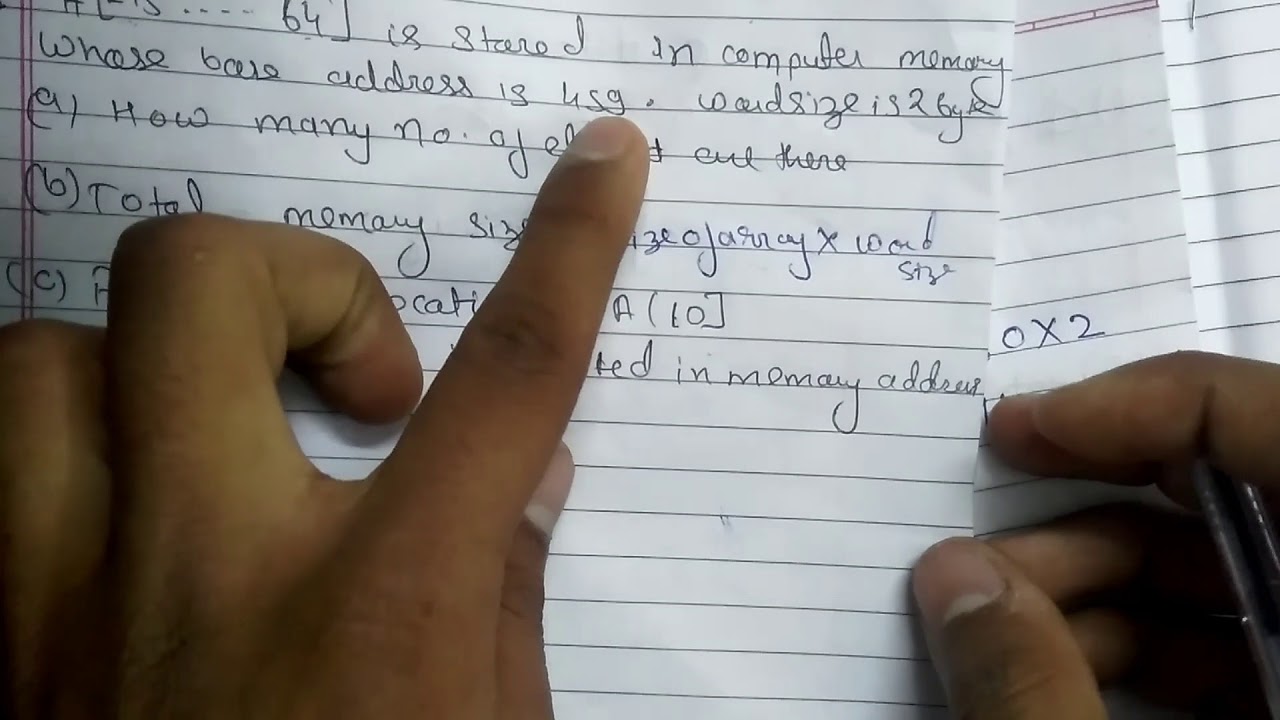 64] is stored in computer memory
whose base address is 459. wordsize is 2 byte
(a) How many no. of are there
(b) Total memory size of array x word
size
(c) A[10]
in memory address
0x2